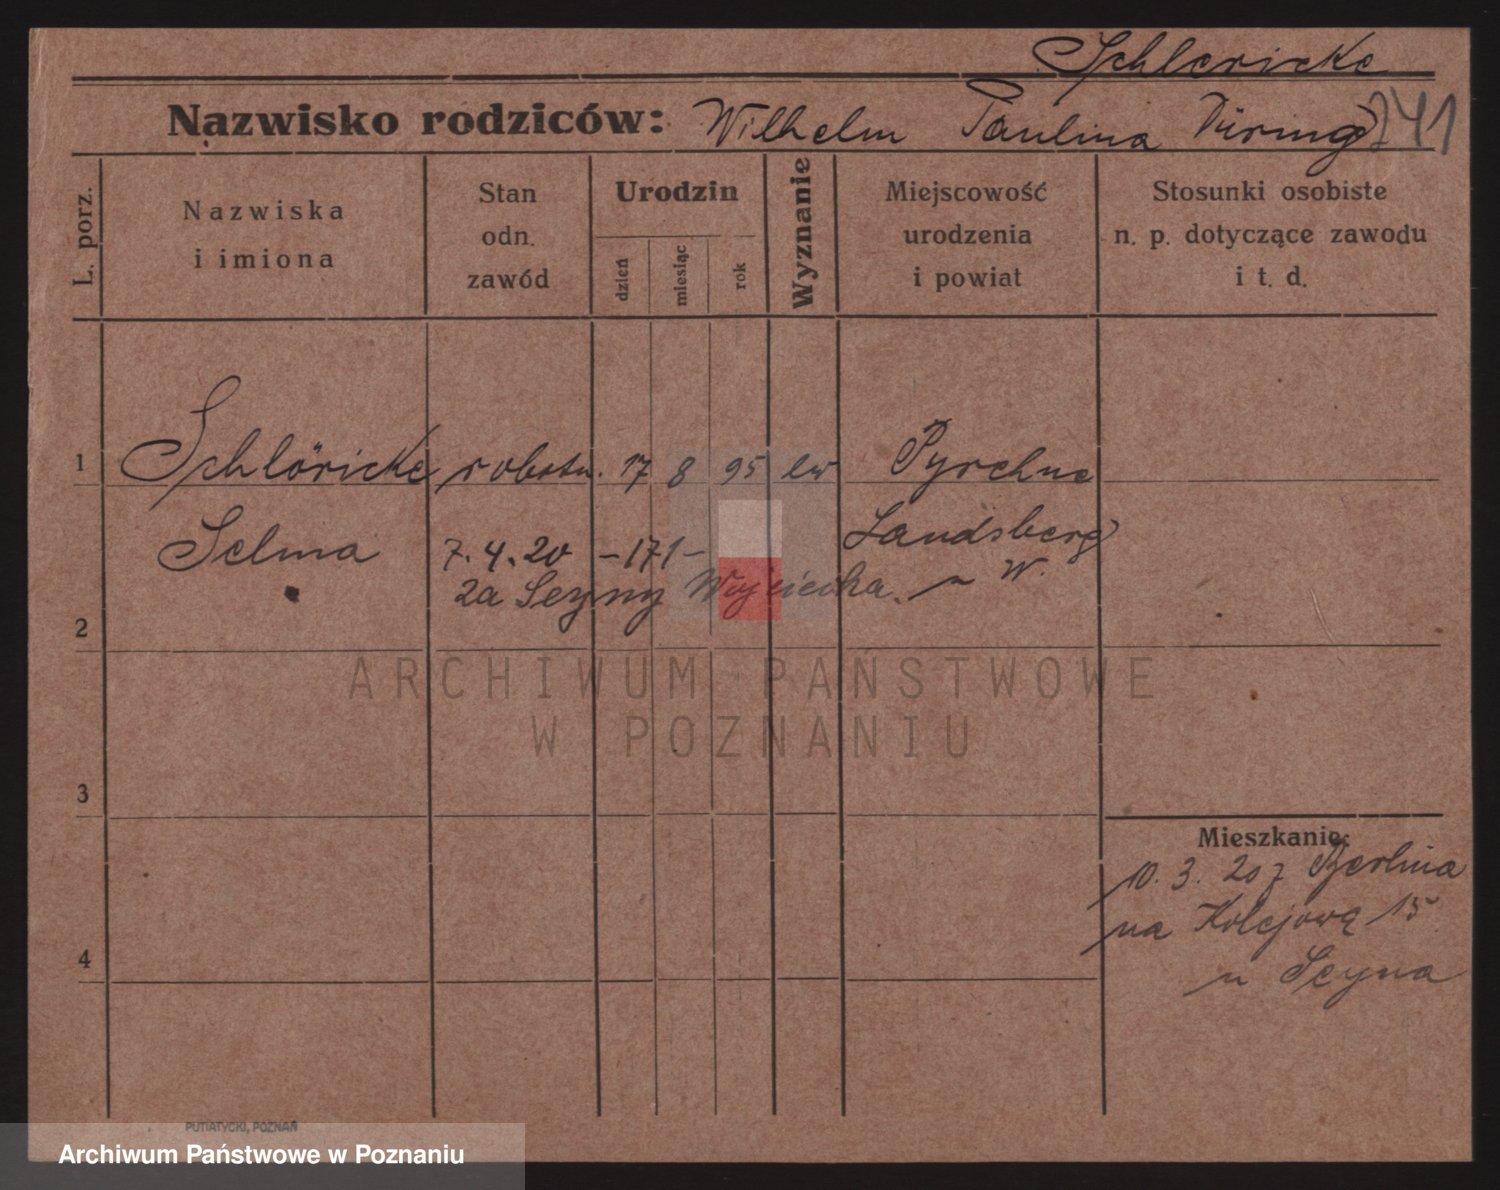 Schlericke
Nazwisko rodziców: Wilhelm Paulina Düring 241
L. porz.
Nazwiska
i imiona
Stan
odn.
zawód
Urodzin
dzień
miesiąc
rok
Wyznanie
Miejscowość
urodzenia
i powiat
Stosunki osobiste
n. p. dotyczące zawodu
i t. d.
1 Schlöricke robotn. 17 8 95 ew Pyrehne
Selma 7.4.20 -171- Landsberg
za Seyny Wojciecha. W.
2
ARCHIWUM PAŃSTWOWE
W POZNANIU
3
Mieszkanie:
10. 3. 20 z Berlina
na Kolejową 15
u Seyna
4
PUTIATYCKI, POZNAŃ
Archiwum Państwowe w Poznaniu